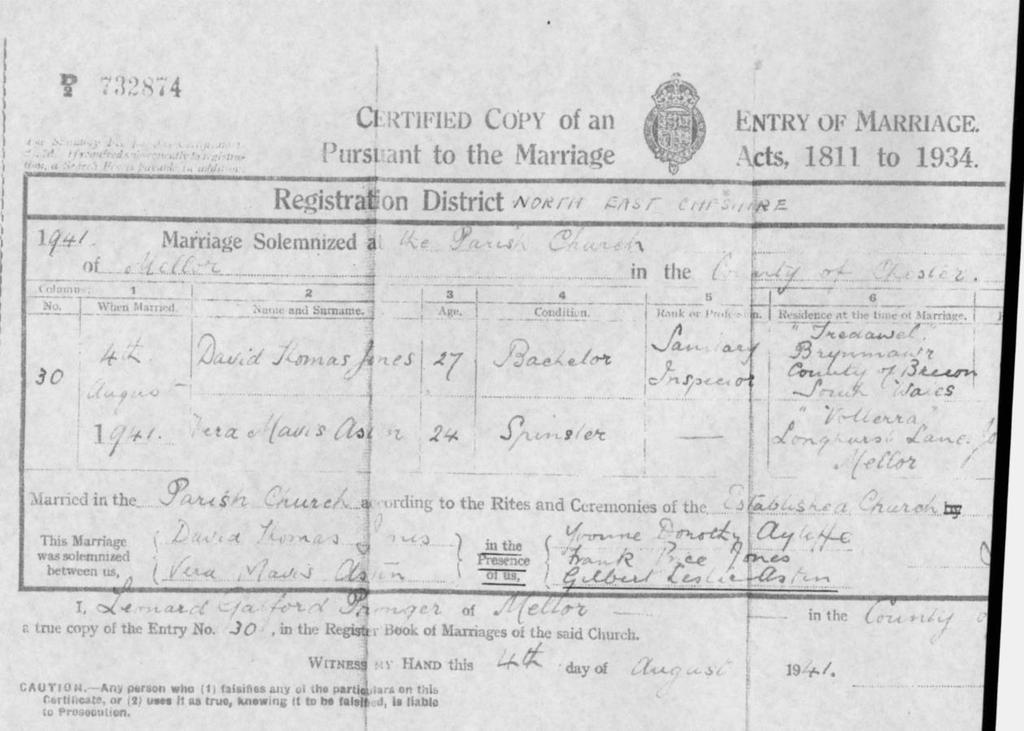 D/2 732874
CERTIFIED COPY of an ENTRY OF MARRIAGE.
Pursuant to the Marriage Acts, 1811 to 1934.
Registration District NORTH EAST CHESHIRE
1941. Marriage Solemnized at the Parish Church
of Mellor in the County of Chester.
Columns 1 2 3 4 5 6
No. When Married. Name and Surname. Age. Condition. Rank or Profession. Residence at the time of Marriage.
30 4th August 1941. David Thomas Jones 27 Bachelor Sanitary Inspector "Tredawel," Brynmawr County of Brecon South Wales
Vera Mavis Astin 24 Spinster — "Volterra" Longhurst Lane, Mellor
Married in the Parish Church according to the Rites and Ceremonies of the Established Church by
This Marriage was solemnized between us, David Thomas Jones Vera Mavis Astin in the Presence of us, Yvonne Dorothy Ayliffe Frank Price Jones Gilbert Leslie Astin
I, Leonard of Mellor — in the County
a true copy of the Entry No. 30, in the Register Book of Marriages of the said Church.
WITNESS MY HAND this 4th day of August 1941.
CAUTION.—Any person who (1) falsifies any of the particulars on this
Certificate, or (2) uses it as true, knowing it to be falsified, is liable
to Prosecution.